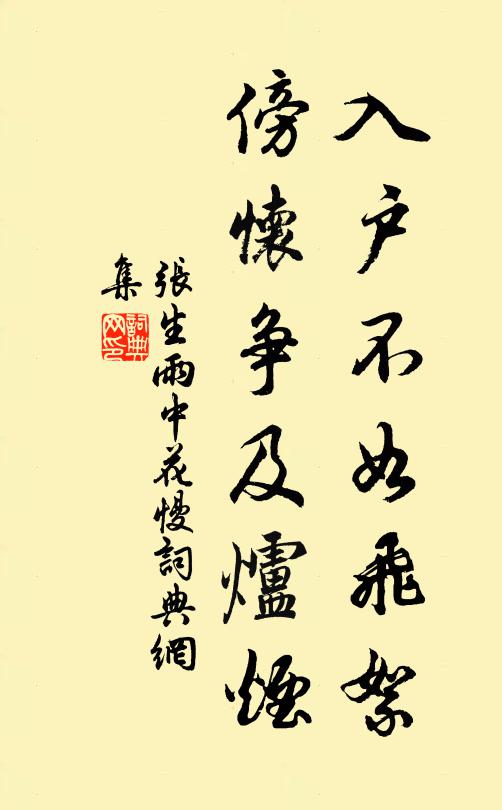 入户不如飛絮
傍懷争及爐煙
張生雨中花慢詞典網
集
詞典
网印